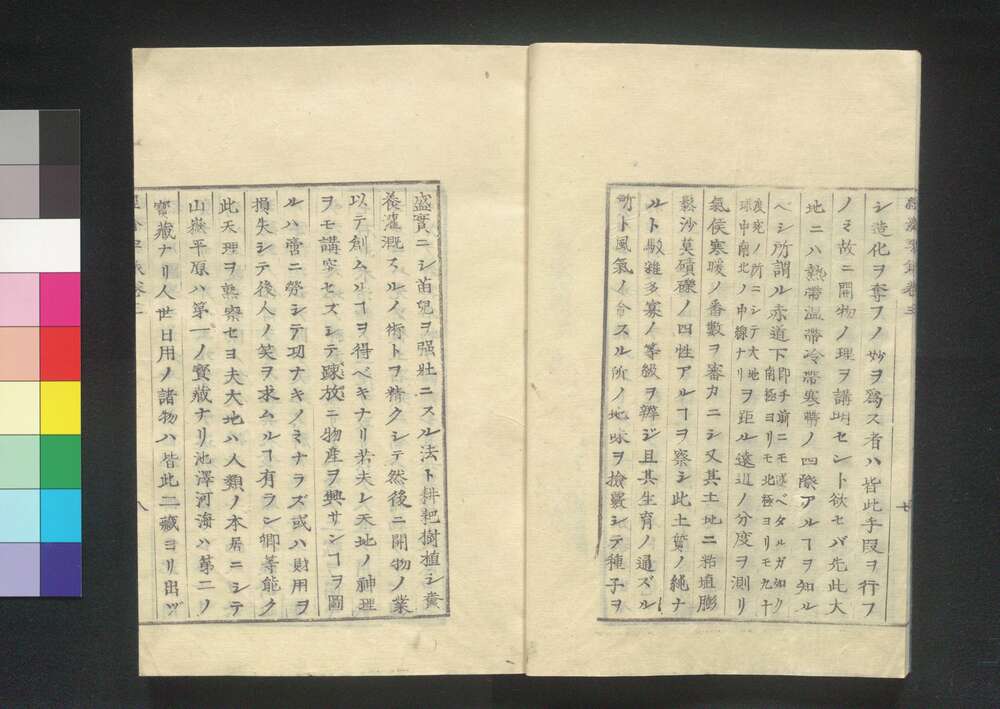 シ造化ヲ奪フノ妙ヲ爲ス者ハ皆此手段ヲ行フ
ノミ故ニ開物ノ理ヲ講明セント欲セバ先此大
地ニハ熱帶温帶冷帶寒帶ノ四際アルヿヲ知ル
ベシ所謂ル赤道下即手前ニモ述ベタルガ如ク
南極ヨリモ北極ヨリモ九十
度究ノ所ニシテ大地ヲ距ル遠近ノ分度ヲ測リ
球中南北ノ中線ナリ
氣侯寒暖ノ番數ヲ審カニシ又其土地ニ粘埴膨
鬆沙莫磧礫ノ四性アルヿヲ察シ此土質ノ純ナ
ルト駁雜多寡ノ等級ヲ辨ジ且其生育ノ適ズル
所ト風氣ノ會スル所ノ地味ヲ撿覈シテ種子ヲ
七
盛實ニシ苗兒ヲ强壯ニスル法ト耕耙樹植シ糞
養灌漑スルノ術トヲ精クシテ然後ニ開物ノ業
以テ創ムルヿヲ得ベキナリ若夫レ天地ノ神理
ヲモ講究セズシテ疎放ニ物産ヲ興サンヿヲ圖
ルハ啻ニ勞シテ功ナキノミナラズ或ハ財用ヲ
損失シテ後人ノ笑ヲ求ムルヿ有ラン卿等能ク
此天理ヲ熟察セヨ夫大地ハ人類ノ本居ニシテ
山嶽平原ハ第一ノ寳藏ナリ池澤河海ハ第二ノ
寳藏ナリ人世日用ノ諸物ハ皆此二藏ヨリ出ヅ
八